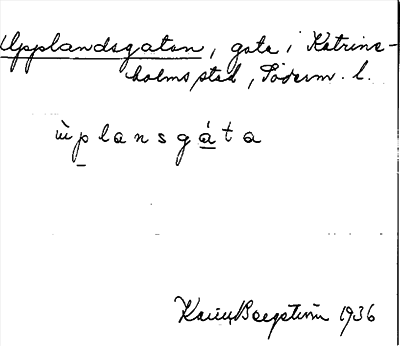 Upplandsgatan, gata i Katrine-
holms stad, Söderm. l.
ùp̲lansgá̲ta
Karin Bergström 1936